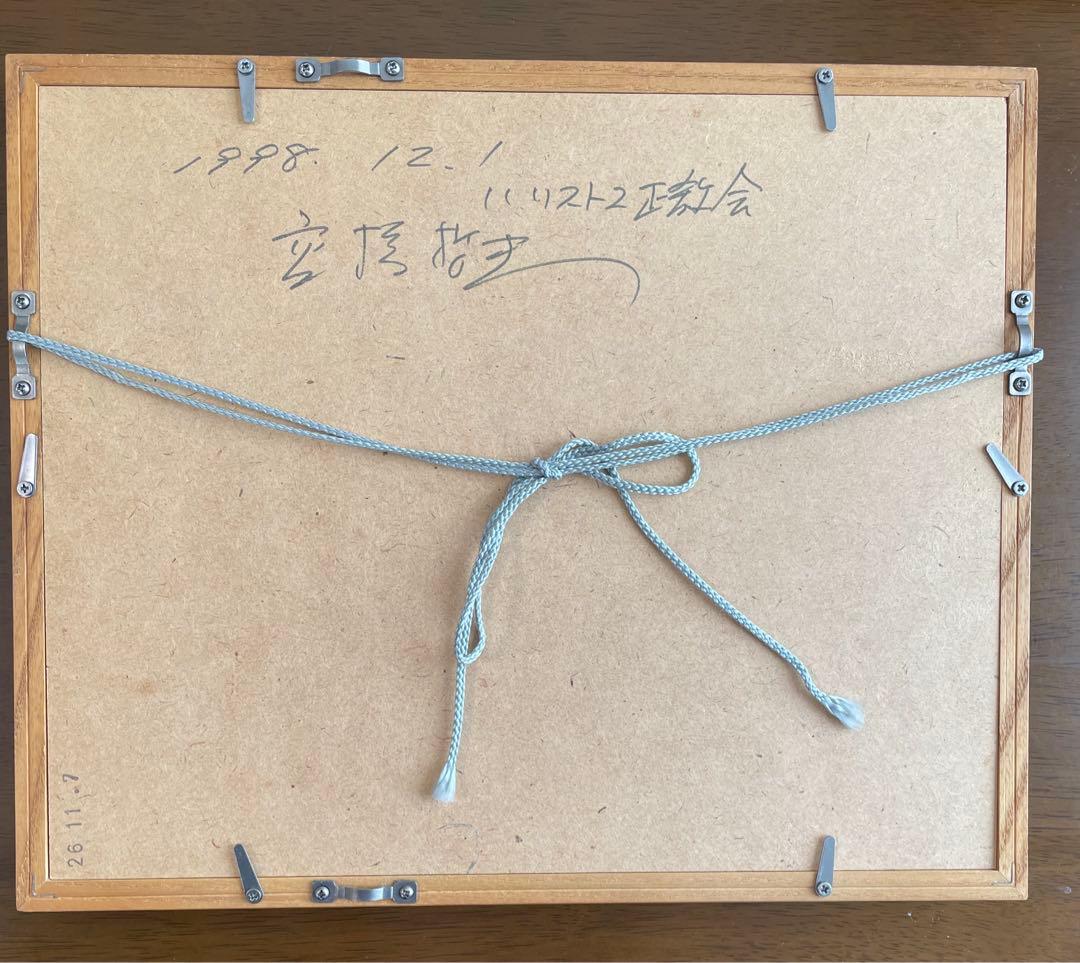 1998. 12. 1
ハリストス正教会
高橋哲夫
26 11.7